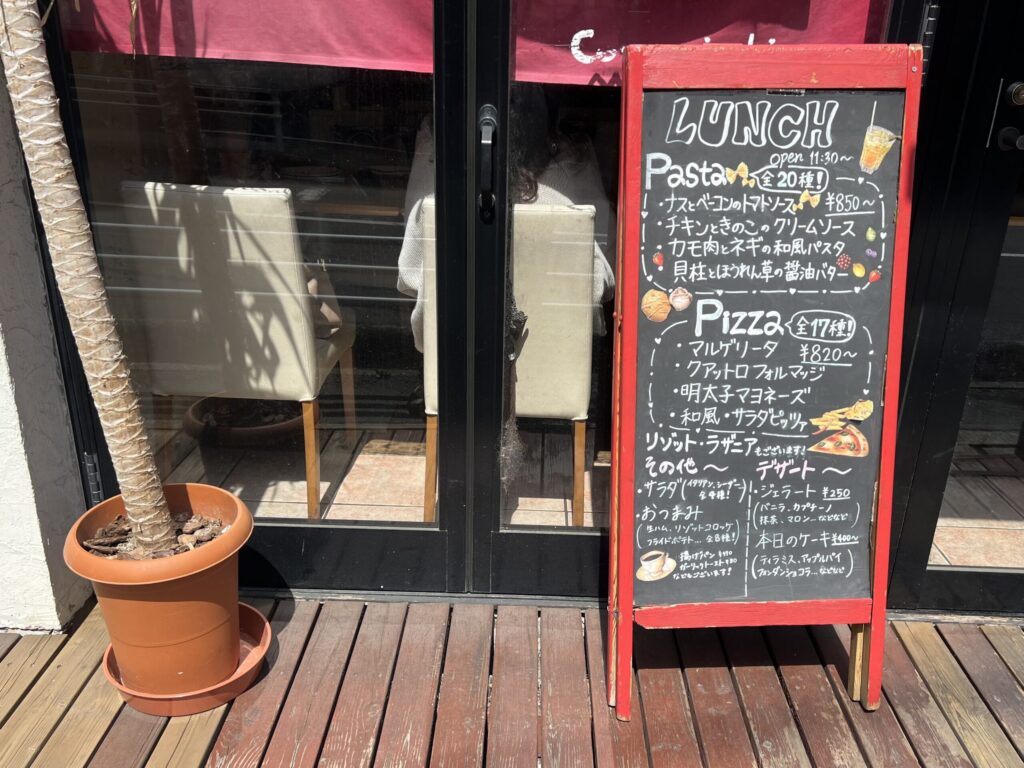 LUNCH
open 11:30~
Pasta 全20種!
・ナスとベーコンのトマトソース ¥850~
・チキンときのこのクリームソース
・カモ肉とネギの和風パスタ
・貝柱とほうれん草の醤油バター
Pizza 全17種!
・マルゲリータ ¥820~
・クアットロフォルマッジ
・明太子マヨネーズ
・和風・サラダピッツァ
リゾット・ラザニアもございます!
その他~
・サラダ(イタリアン、シーザー 全4種!)
・おつまみ
(生ハム、リゾットコロッケ
フライドポテト… 全8種!)
揚げパン
ガーリックトースト
などもございます!
デザート~
・ジェラート ¥250
(バニラ、カプチーノ
抹茶、マロン…などなど)
・本日のケーキ ¥400~
(ティラミス、アップルパイ
フォンダンショコラ…などなど)